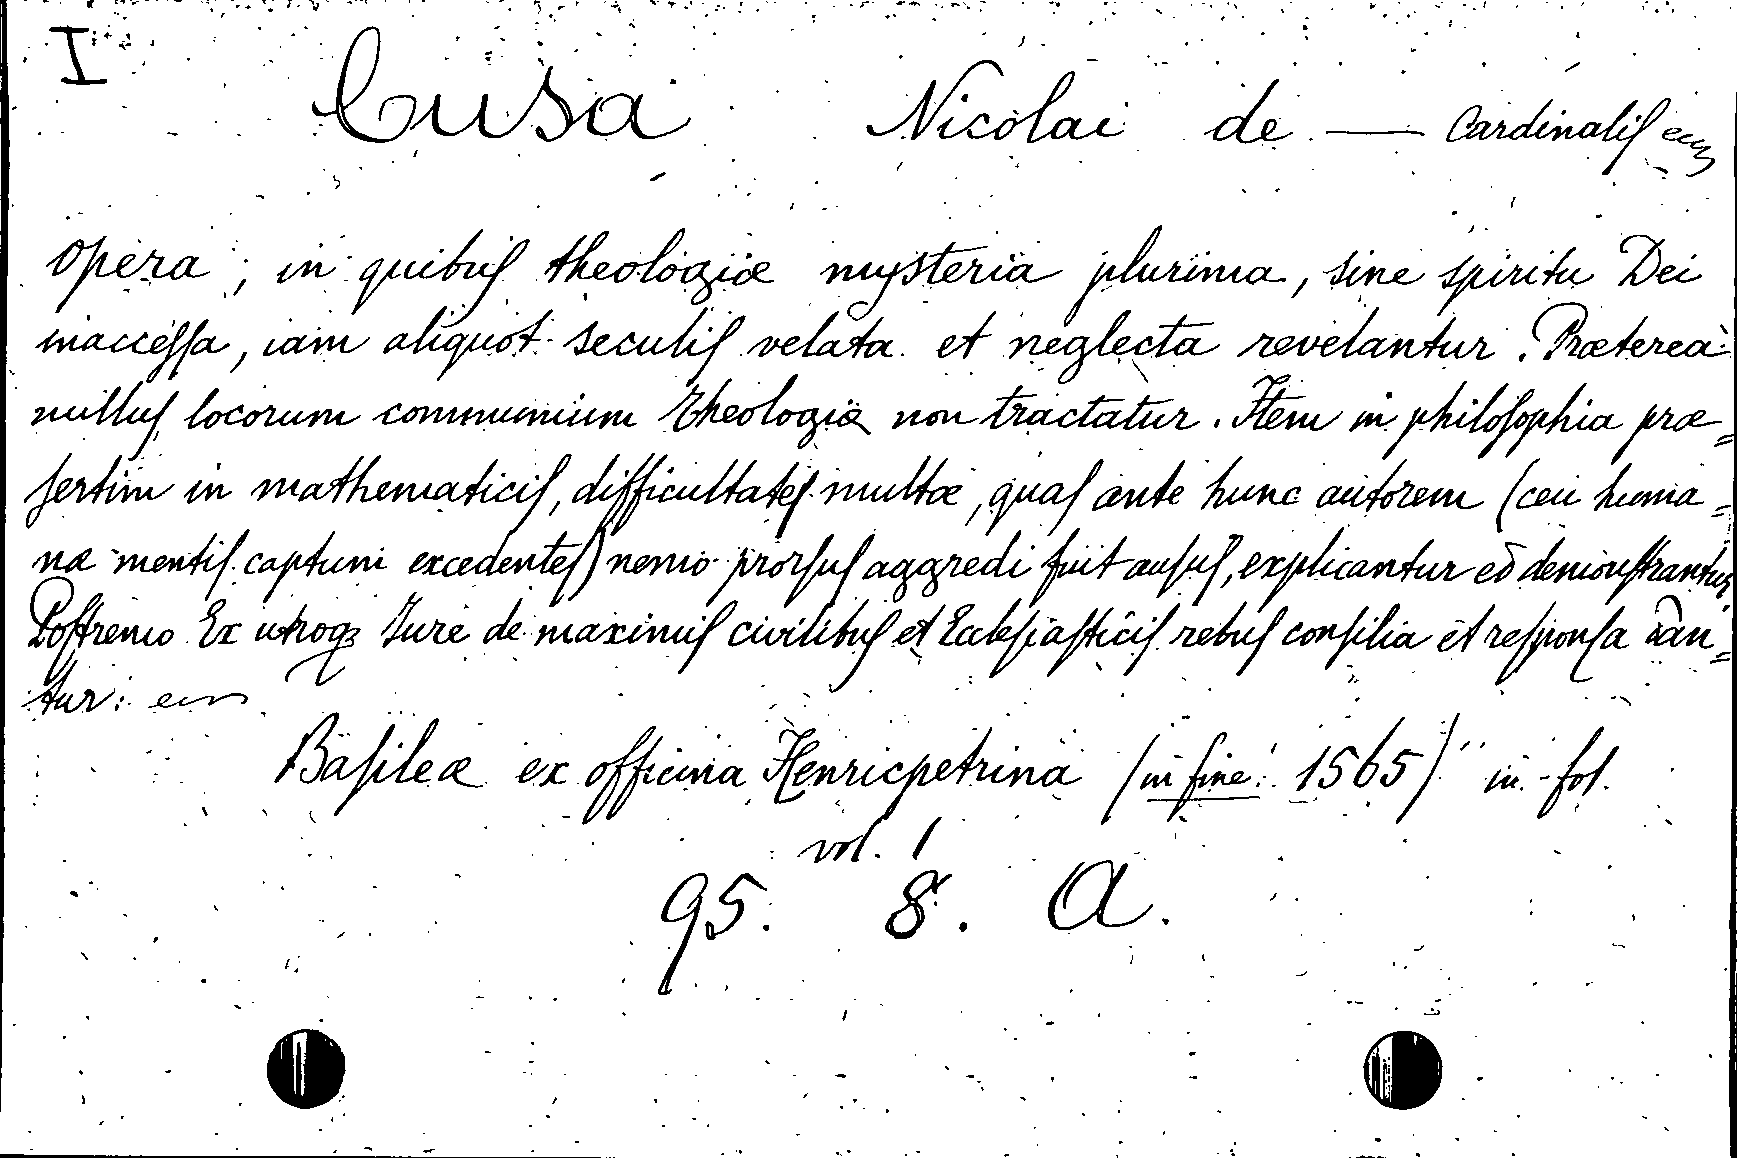 I
Cusa Nicolai de — Cardinalis
opera, in quibus theologiæ mysteria plurima, sine spiritu Dei
inaccessa, iam aliquot seculis velata et neglecta revelantur. Præterea
nullus locorum communium Theologiæ non tractatur. Item in philosophia præ=
sertim in mathematicis, difficultates multæ, quas ante hunc autorem (ceu huma=
næ mentis captum excedentes) nemo prorsus aggredi fuit ausus, explicantur et demonstrantur.
Postremo Ex utroq3 Iure de maximis civilibus et Ecclesiasticis rebus consilia et responsa dan=
tur:
Basileæ ex officina Henricpetrina (in fine: 1565) in-fol.
vol. 1
95. 8. A.